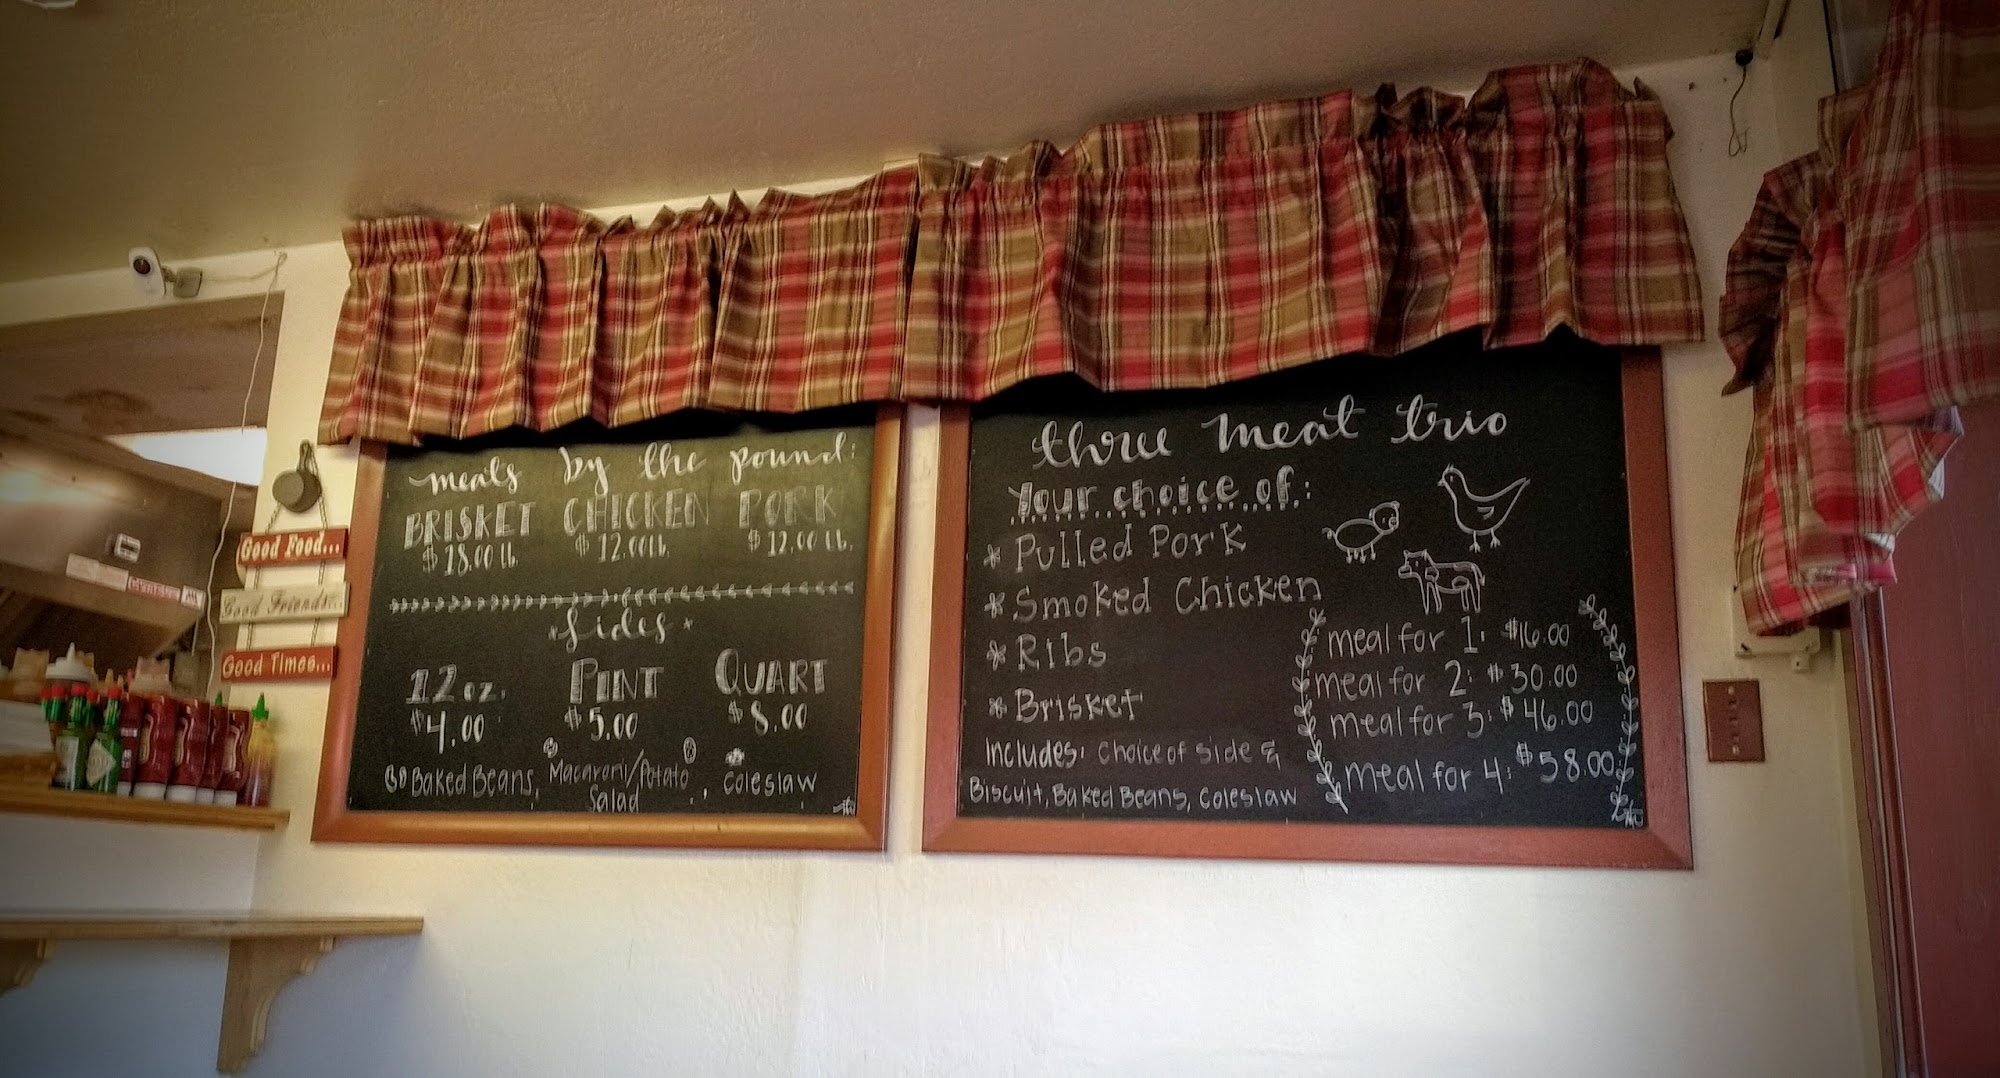 Good Food...
Good Friends...
Good Times...
meats by the pound:
BRISKET CHICKEN PORK
$18.00 lb. $12.00 lb. $12.00 lb.
Sides
12oz. PINT QUART
$4.00 $5.00 $8.00
Baked Beans, Macaroni/Potato Salad, Coleslaw
three meat trio
Your choice of:
* Pulled Pork
* Smoked Chicken
* Ribs
* Brisket
Includes: Choice of side &
Biscuit, Baked Beans, Coleslaw
meal for 1: $16.00
meal for 2: $30.00
meal for 3: $46.00
meal for 4: $58.00